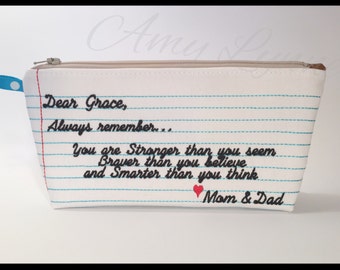 Amy Lynn
Dear Grace,
Always remember...
You are Stronger than you seem
Braver than you believe
and Smarter than you think
Mom & Dad